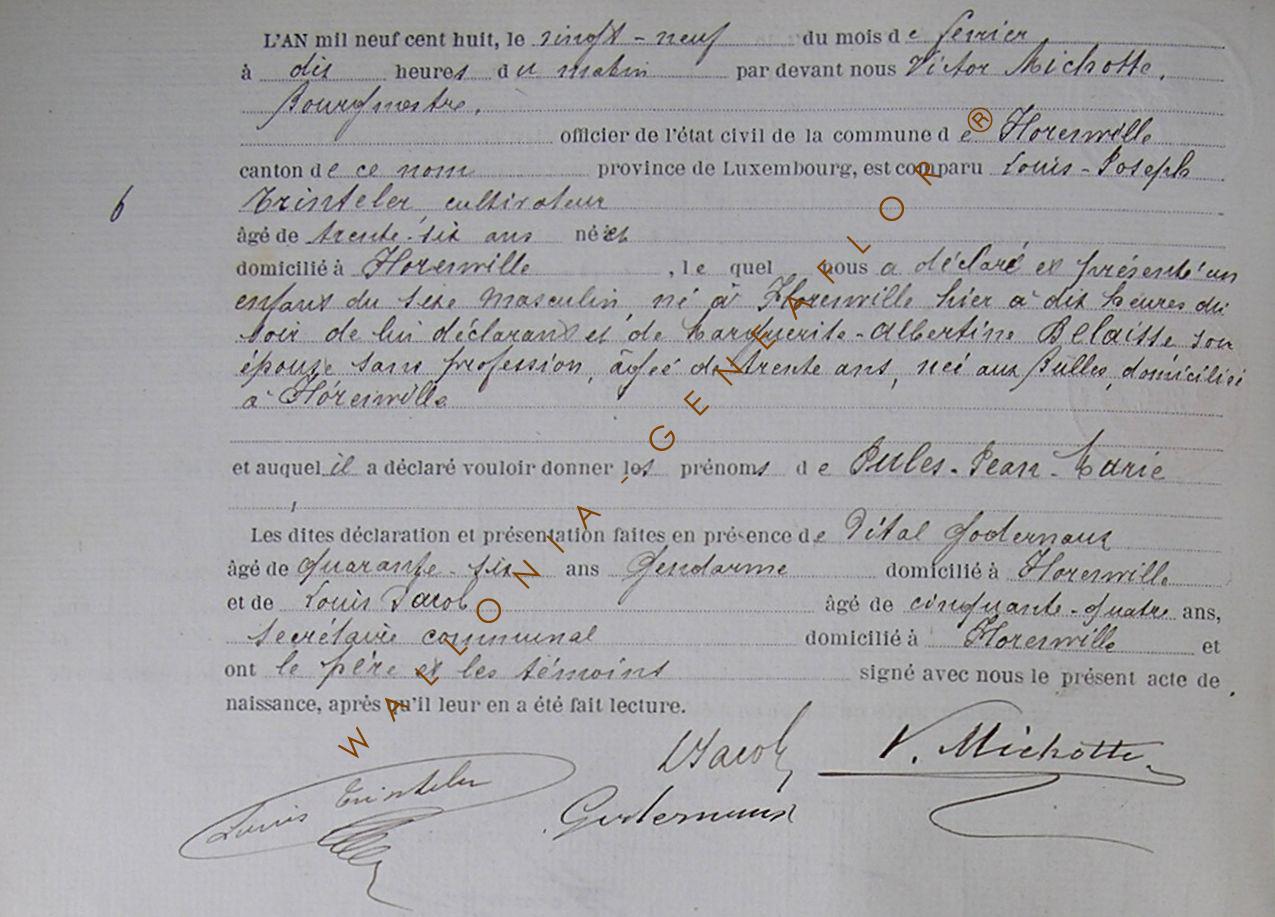 L'AN mil neuf cent huit, le vingt-neuf du mois de février
à dix heures du matin par devant nous Victor Michotte,
Bourgmestre,
officier de l'état civil de la commune de Florenville
canton de ce nom province de Luxembourg, est comparu Louis-Joseph
Trinteler, cultivateur
6
âgé de trente-six ans né et
domicilié à Florenville, lequel nous a déclaré et présenté un
enfant du sexe masculin, né à Florenville hier à dix heures du
soir de lui déclarant et de Marguerite-Albertine Belaisse son
épouse sans profession, âgée de trente ans, née aux Bulles, domiciliée
à Florenville
et auquel il a déclaré vouloir donner les prénoms de Jules-Jean-Marie
Les dites déclaration et présentation faites en présence de Vital Godernaux
âgé de quarante-six ans Gendarme domicilié à Florenville
et de Louis Jacob âgé de cinquante-quatre ans,
secrétaire communal domicilié à Florenville et
ont le père et les témoins signé avec nous le présent acte de
naissance, après qu'il leur en a été fait lecture.
LJacob V. Michotte
Louis Trinteler Godernaux
WALLONIA-GENEAFLOR®